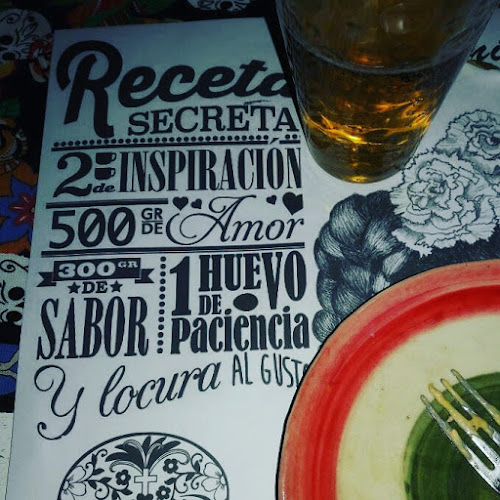 Receta
SECRETA
2 de INSPIRACIÓN
500 GR DE Amor
300 GR
DE
SABOR
1 HUEVO
DE
Paciencia
Y locura AL GUSTO